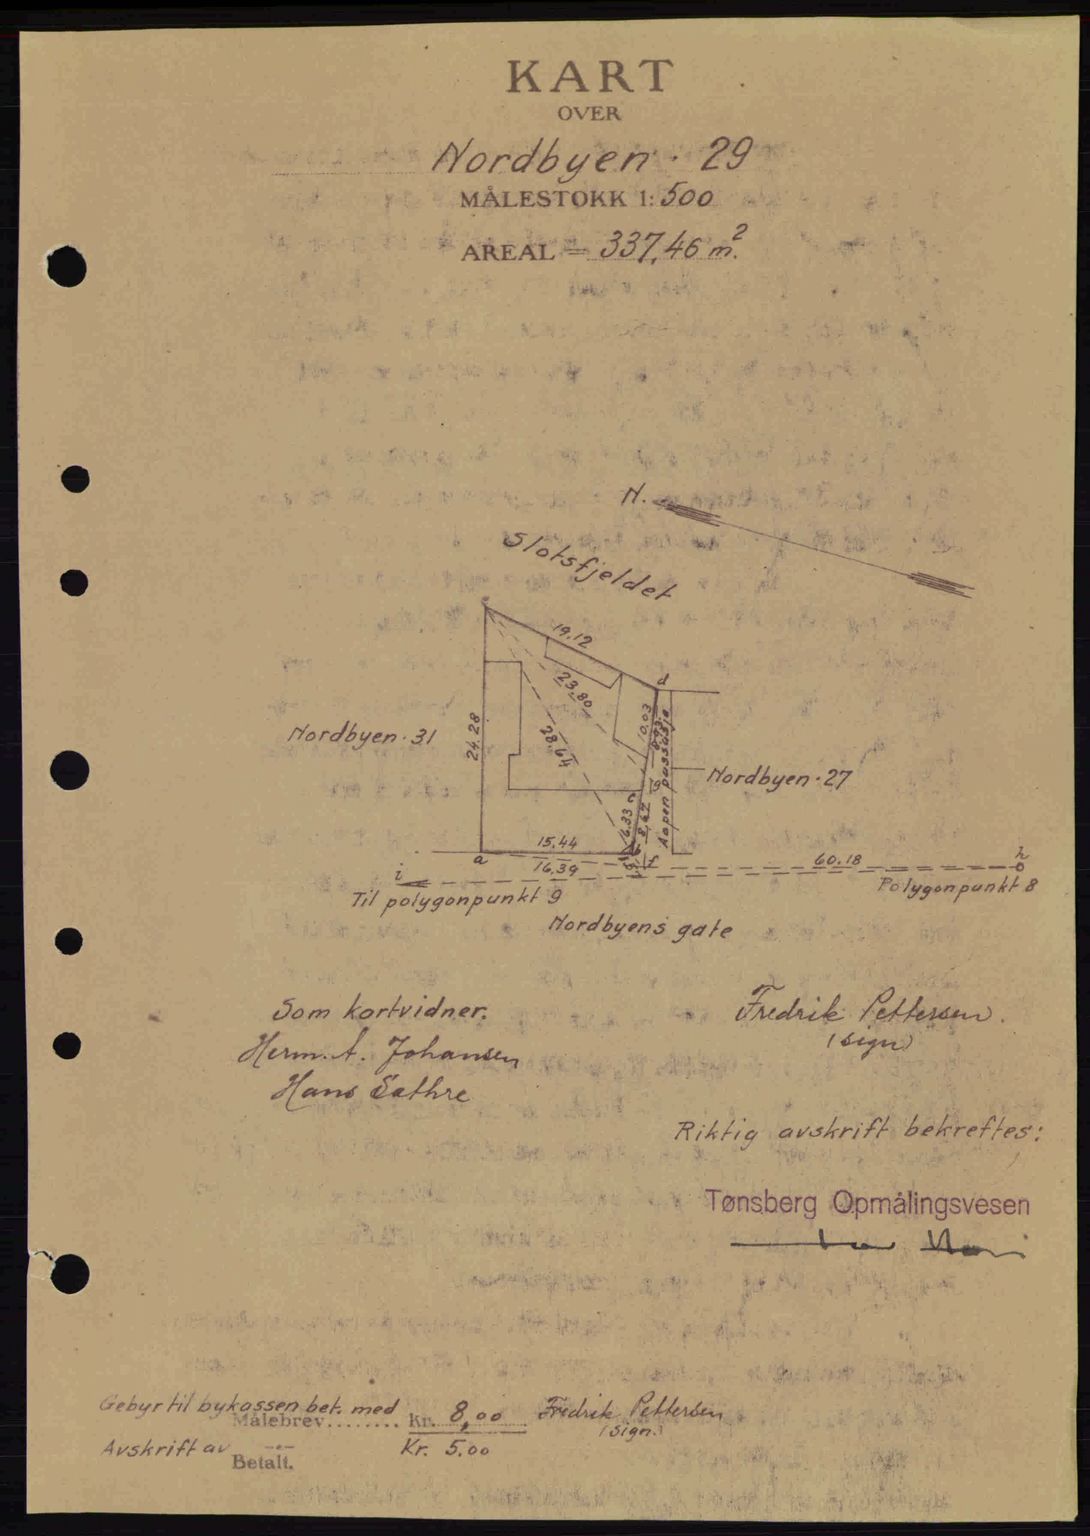 KART
OVER
Nordbyen · 29
MÅLESTOKK 1: 500
AREAL = 337,46 m².
N.
Slotsfjeldet
c
19.12
d
23,80
10.03
Nordbyen · 31
24,28
28,64
Aapen passasje
Nordbyen · 27
g
e
6.33
8,67
15.44
a
b
f
16.39
60.18
h
i
Til polygonpunkt 9
Polygonpunkt 8
Nordbyens gate
Som kartvidner.
Fredrik Pettersen.
(sign)
Herm. A. Johansen
Hans Sæthre
Riktig avskrift bekreftes:
Tønsberg Opmålingsvesen
Gebyr til bykassen bet. med
Målebrev........ Kr. 8,00 Fredrik Pettersen
(sign.)
Avskrift av —"— Kr. 5.00
Betalt.